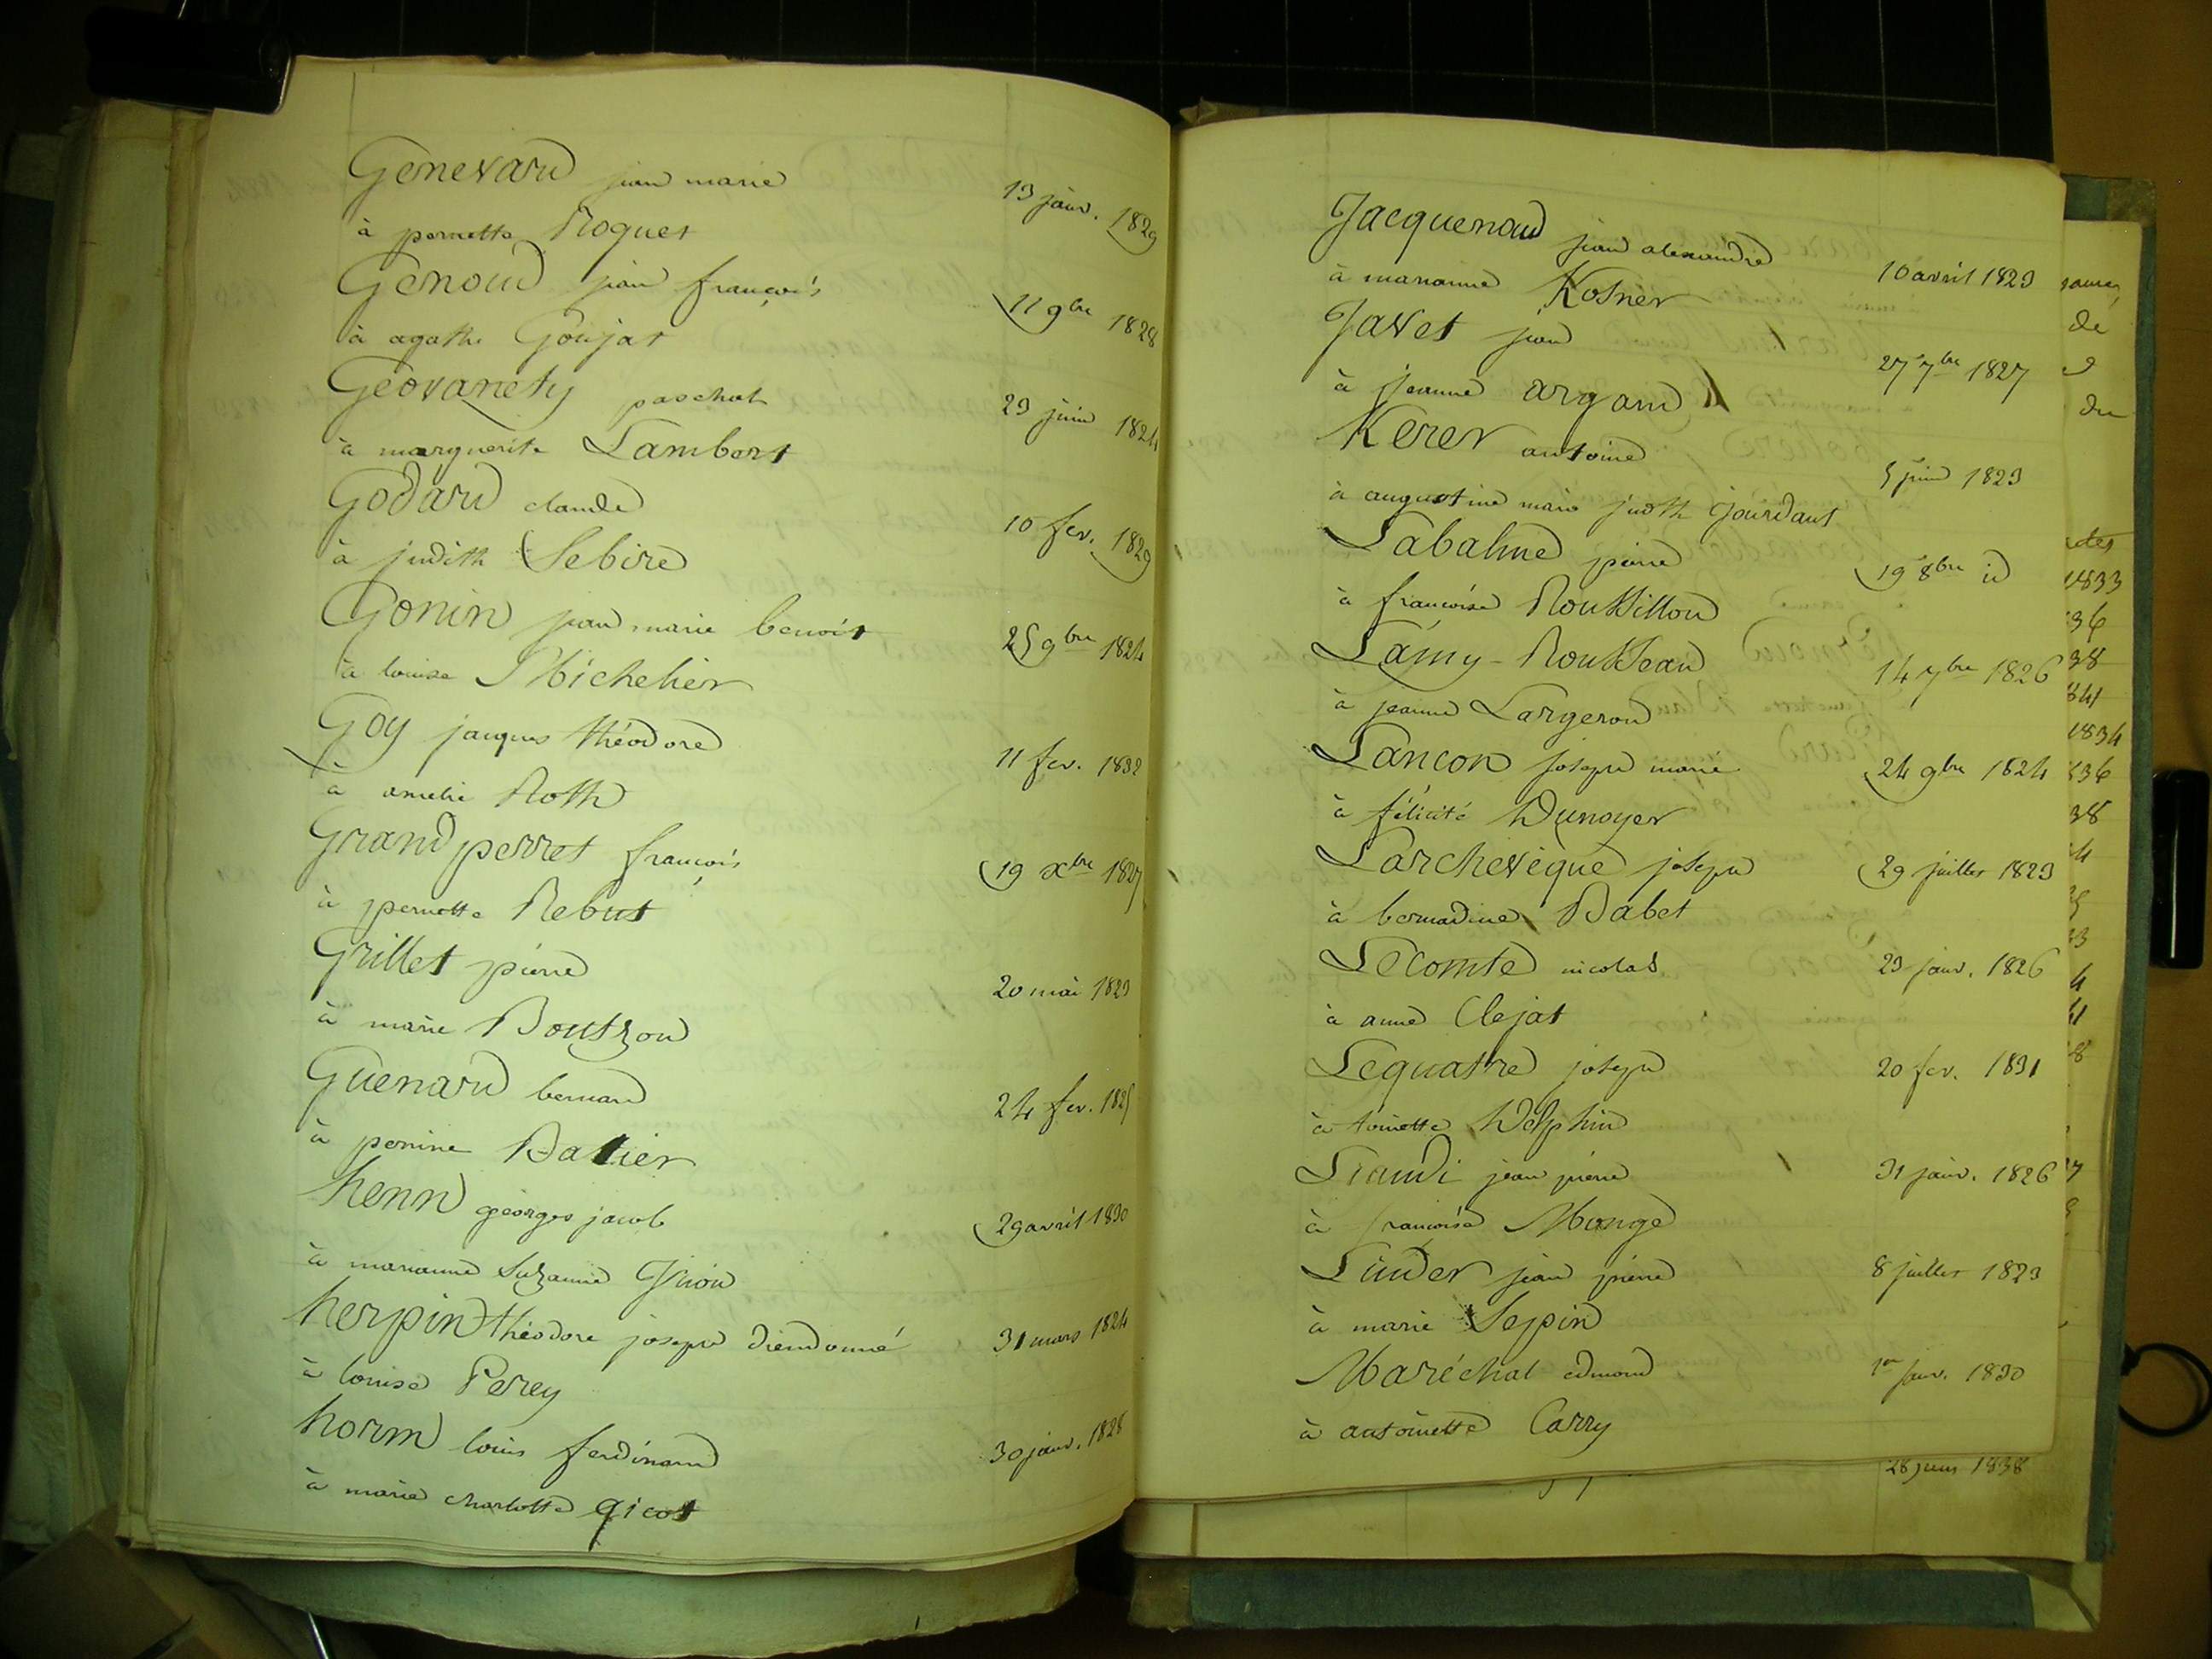 Genevard jean marie 13 janv. 1829
à pernette Roques
Genoud jean françois 11 9bre 1828
à agathe Goujat
Geovanety paschal 23 juin 1824
à marguerite Lambert
Godard claude 10 fev. 1829
à judith Sebire
Gonin jean marie benoit 25 9bre 1824
à louise Michelier
Goy jacques théodore 11 fev. 1832
à amelie Roth
Grandperret françois 19 xbre 1827
à pernette Rebut
Grillet pierre 20 mai 1823
à marie Boutzon
Guenard bernard 24 fev. 1825
à perrine Batier
henn georges jacob 29 avril 1830
à marianne Suzanne
herpin théodore joseph dieudonné 31 mars 1824
à louise Perey
horm louis ferdinand 30 janv. 1828
à marie charlotte gicot
Jacquenoud jean alexandre 10 avril 1823
à marianne Kosner
Javet jean 27 7bre 1827
à jeanne argand
Kerer antoine 5 juin 1823
à augustine marie judith jourdant
Labalme pierre 19 8bre id
à françoise Roussillon
Lamy-Rousseau 14 7bre 1826
à jeanne Largeron
Lançon joseph marie 24 9bre 1824
à félicité Dunoyer
Larchevêque joseph 29 juillet 1823
à bernardine Babet
Lecomte nicolas 23 janv. 1826
à anne Clejat
Lequatre joseph 20 fev. 1831
à toinette Delphin
Liaudi jean pierre 31 janv. 1826
à françoise Monge
Linder jean pierre 8 juillet 1823
à marie Seppin
Maréchal edmond 1er janv. 1830
à antoinette Carry
28 juin 1838
de
du
1833
36
38
841
1834
836
38